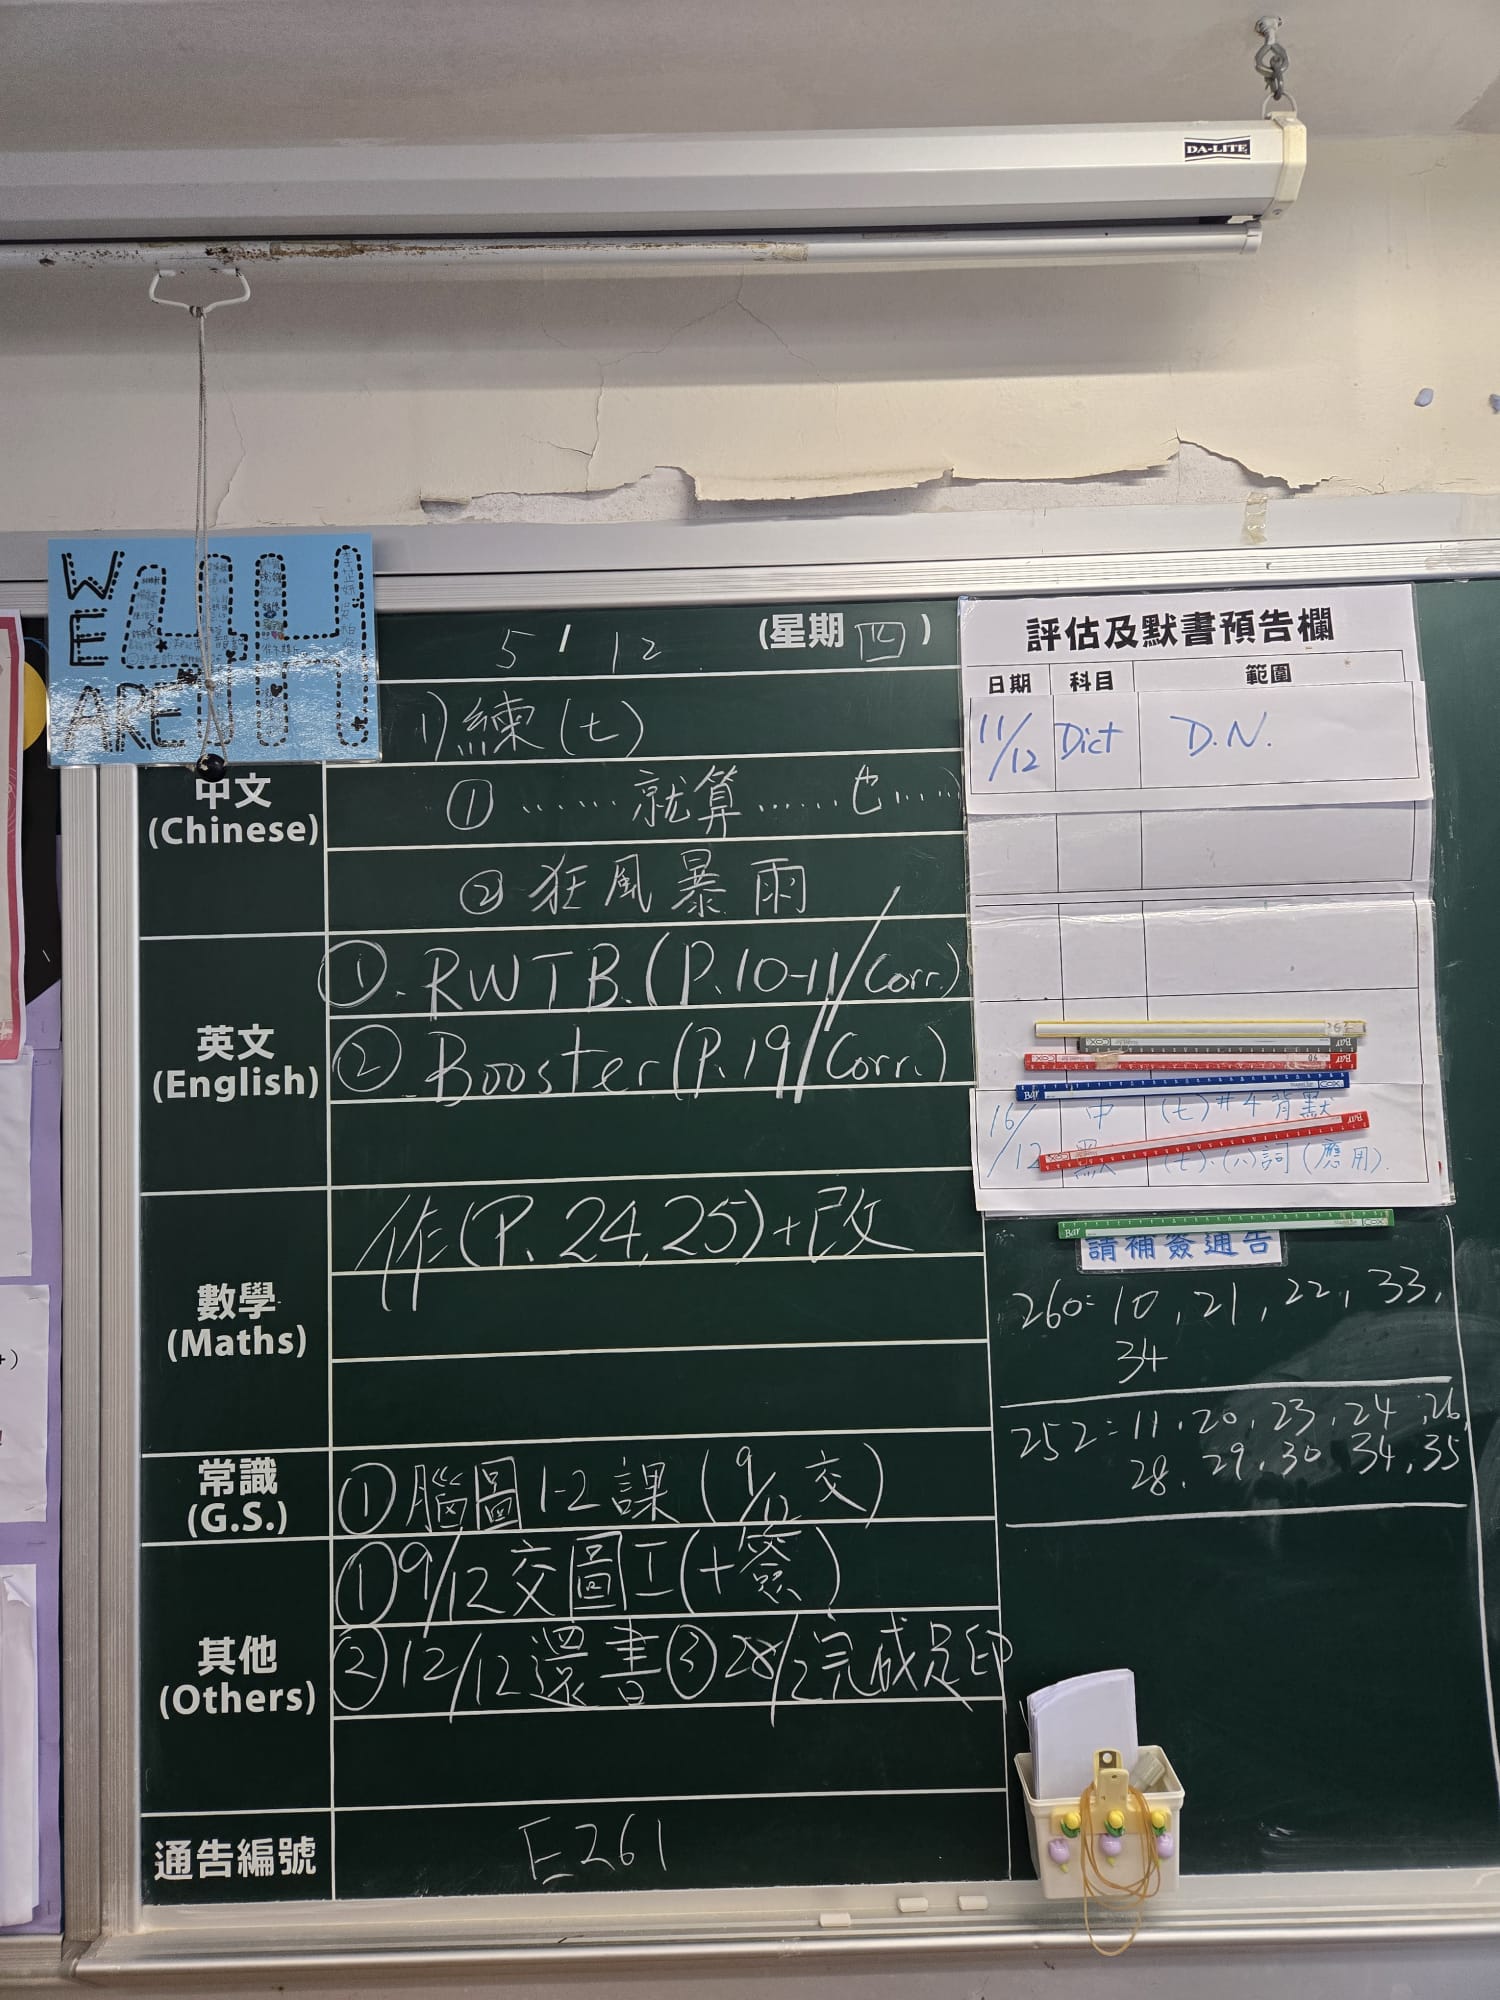 DA-LITE
WE
ARE
4H
5 / 12 (星期四)
中文
(Chinese)
1) 練(七)
① ...... 就算 ...... 也 ....
② 狂風暴雨
英文
(English)
①. RWTB. (P.10-11/Corr.)
②. Booster (P.19/Corr.)
數學
(Maths)
作(P. 24, 25)+改
常識
(G.S.)
① 腦圖 1-2 課 (9/12 交)
其他
(Others)
① 9/12 交圖工(+簽)
② 12/12 還書 ③ 28/2 完成足印
通告編號
E261
評估及默書預告欄
日期 科目 範圍
11/12 Dict D.N.
16/12 中默 (七)#4背默
(七)、(八)詞(應用).
請補簽通告
260: 10, 21, 22, 33,
34
252: 11, 20, 23, 24, 26,
28, 29, 30, 34, 35